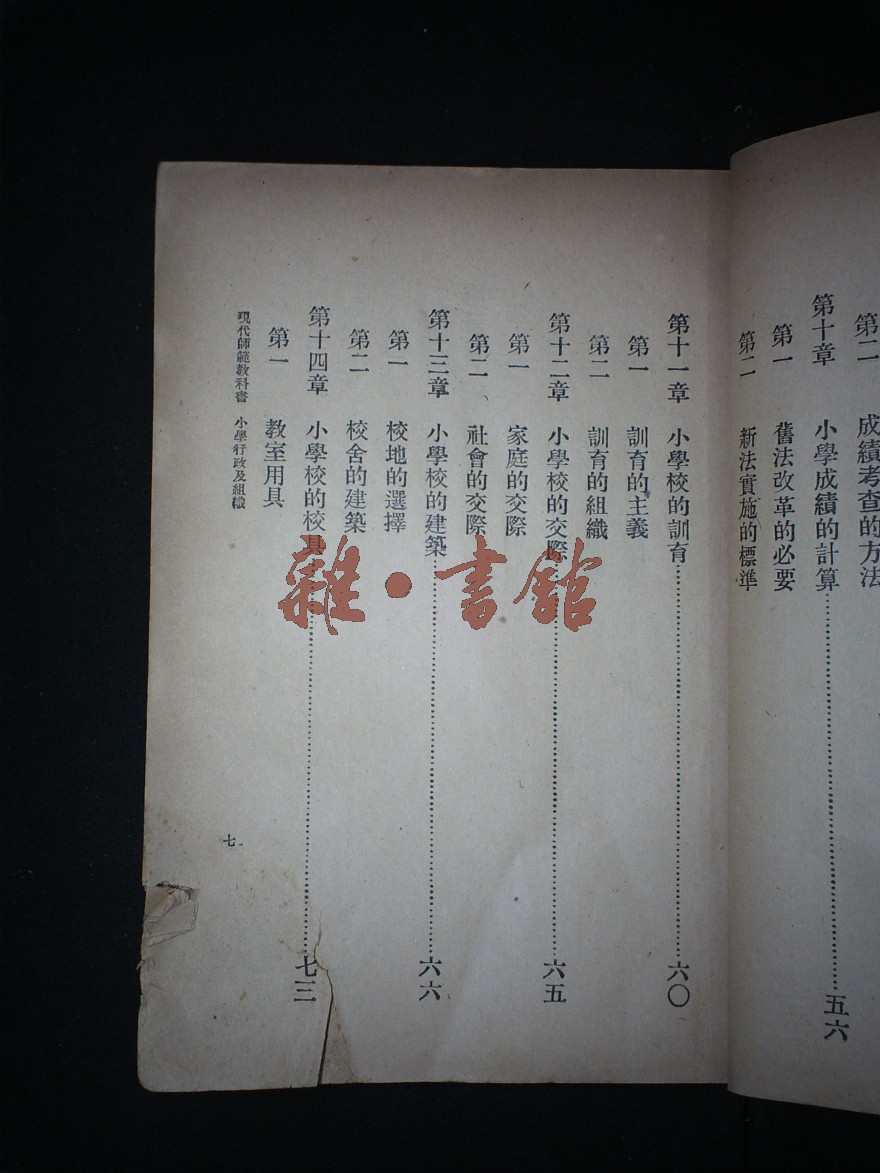 第二 成績考查的方法
第十章 小學成績的計算 五六
第一 舊法改革的必要
第二 新法實施的標準
第十一章 小學校的訓育 六〇
第一 訓育的主義
第二 訓育的組織
第十二章 小學校的交際 六五
第一 家庭的交際
第二 社會的交際
第十三章 小學校的建築 六六
第一 校地的選擇
第二 校舍的建築
第十四章 小學校的校具 七三
第一 教室用具
現代師範教科書 小學行政及組織
七
雜·書館